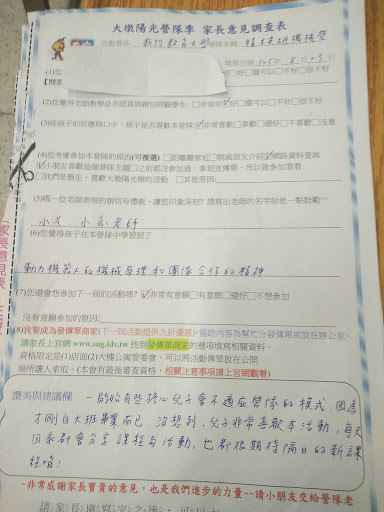 大墩陽光營隊季 家長意見調查表
新竹教育大學
填寫日期 105年8月23日
(1)您
(2)您覺得老師教學是否認真與親切照顧學生:□非常好☑很好□還可以□不好□很不好
(3)從孩子的反應與口中,孩子是否喜歡本營隊☑非常喜歡□喜歡□還好□不喜歡□沒意
(4)您考慮參加本營隊的原因(可複選)□距離離家近□親戚朋友介紹☑網路資料查詢
☑小朋友喜歡這個營隊主題□之前都沒參加過,拿到宣傳單,所以就參加看看
□我們是舊生,喜歡大墩陽光辦的活動 □其他原因:
(5)哪一位老師表現的親切有禮貌,讓您印象深刻?請寫出老師的名字給他一點鼓勵^^
(6)您覺得孩子在本營隊中學習到了
動力機器人的機械原理和團隊合作的精神
(7)您還會想參加下一屆的活動嗎?☑非常有意願□有意願□還好□不想參加
沒有意願參加的原因:
(8)我要成為發傳單商家(下一次活動提供九折優惠)?協助內容為幫忙分發傳單或放在辦公室。
請家長上官網 www.sng.idv.tw 找到發傳單商家的選項填寫相關資料。
資格限定是(1)店面(2)大樓公寓管委會,可以將活動傳單放在公開
場所讓人索取。(本會有最後審查資格,相關注意事項請上官網觀看)
讚美與建議欄
一開始有些擔心兒子會不適應營隊的模式,因為
才剛自大班畢業而已,沒想到,兒子非常喜歡本活動,每天
回家都會分享課程与活動,也都很期待隔日的新課
程唷!
~非常感謝家長寶貴的意見,也是我們進步的力量~~請小朋友交給營隊老
請家長填寫完之後,可以